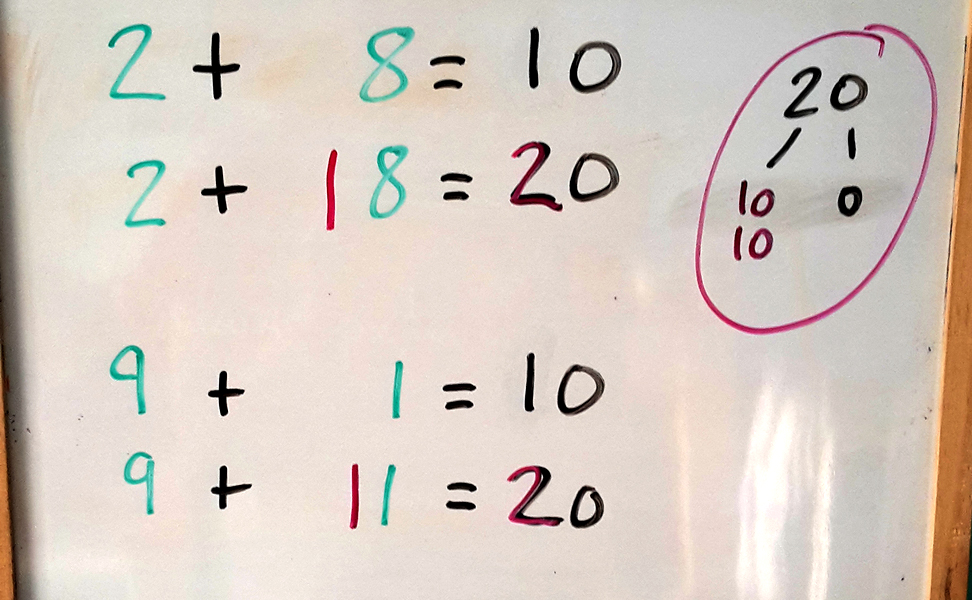 2 + 8 = 10
2 + 18 = 20
9 + 1 = 10
9 + 11 = 20
20
/ |
10 0
10